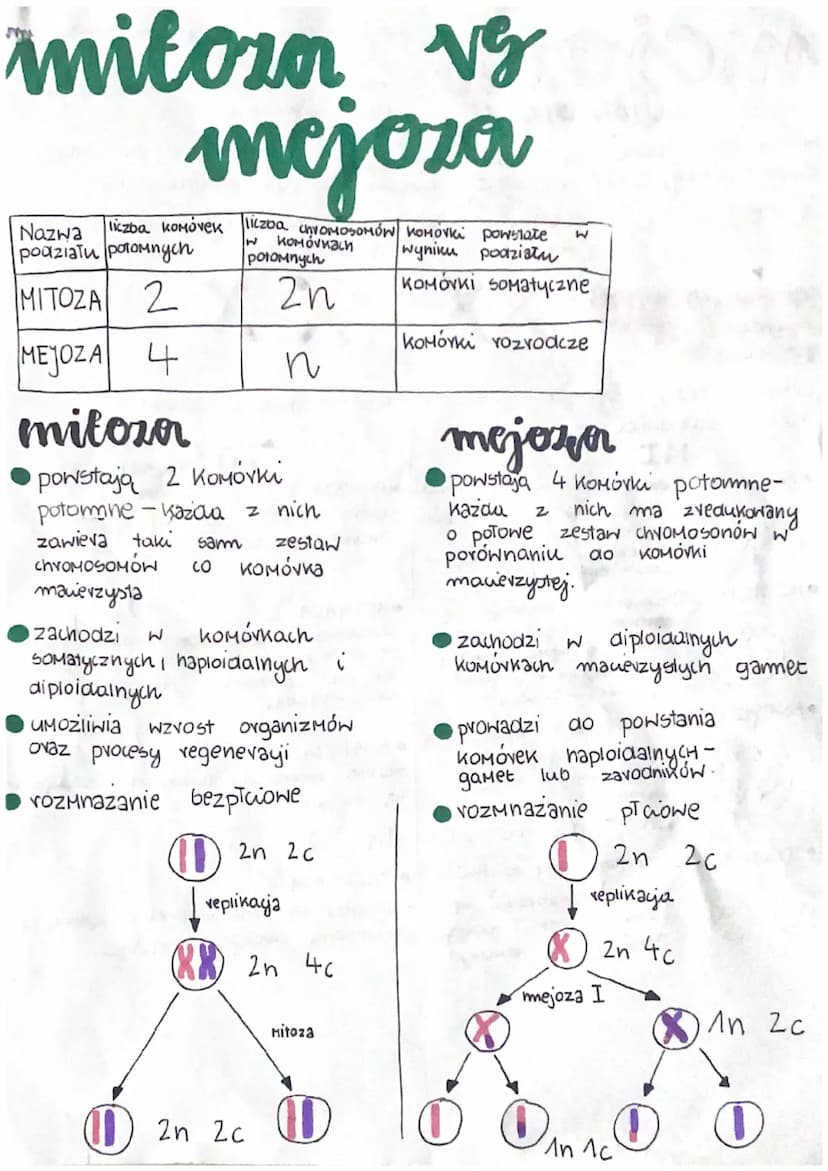 mitoza vs
mejoza
Nazwa podziału
liczba komórek potomnych
liczba chromosomów w komórkach potomnych
komórki powstałe w wyniku podziału
MITOZA 2 2n komórki somatyczne
MEJOZA 4 n komórki rozrodcze
mitoza
powstają 2 komórki
potomne – każda z nich
zawiera taki sam zestaw
chromosomów co komórka
macierzysta
zachodzi w komórkach
somatycznych, haploidalnych i
diploidalnych
umożliwia wzrost organizmów
oraz procesy regeneracji
rozmnażanie bezpłciowe
2n 2c
replikacja
2n 4c
mitoza
2n 2c
mejoza
powstają 4 komórki potomne-
każda z nich ma zredukowany
o połowę zestaw chromosonów w
porównaniu do komórki
macierzystej.
zachodzi w diploidalnych
komórkach macierzystych gamet
prowadzi do powstania
komórek haploidalnych –
gamet lub zarodników.
rozmnażanie płciowe
2n 2c
replikacja
2n 4c
mejoza I
1n 2c
1n 1c